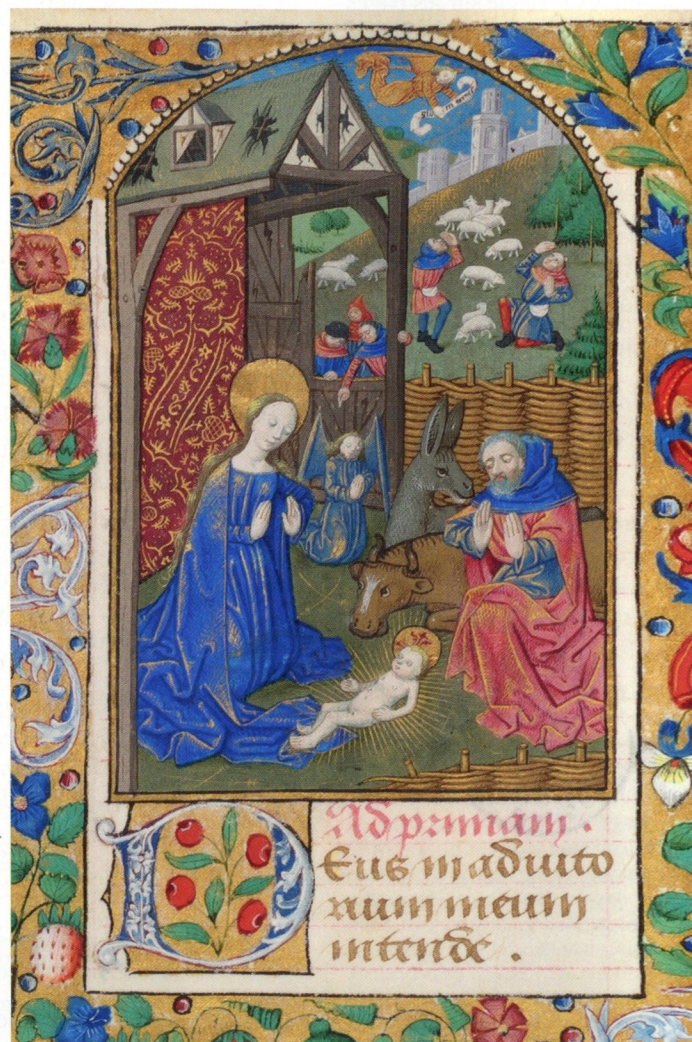 Ad primam.
Deus in adiuto
rium meum
intende.